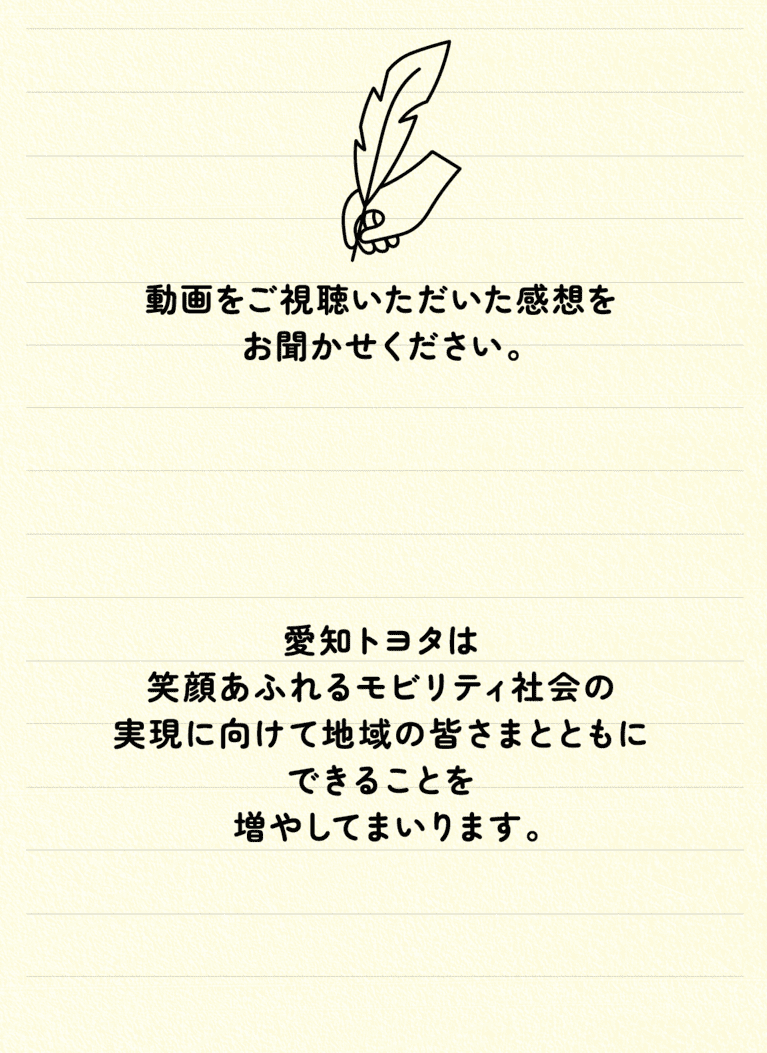 動画をご視聴いただいた感想を
お聞かせください。
愛知トヨタは
笑顔あふれるモビリティ社会の
実現に向けて地域の皆さまとともに
できることを
増やしてまいります。